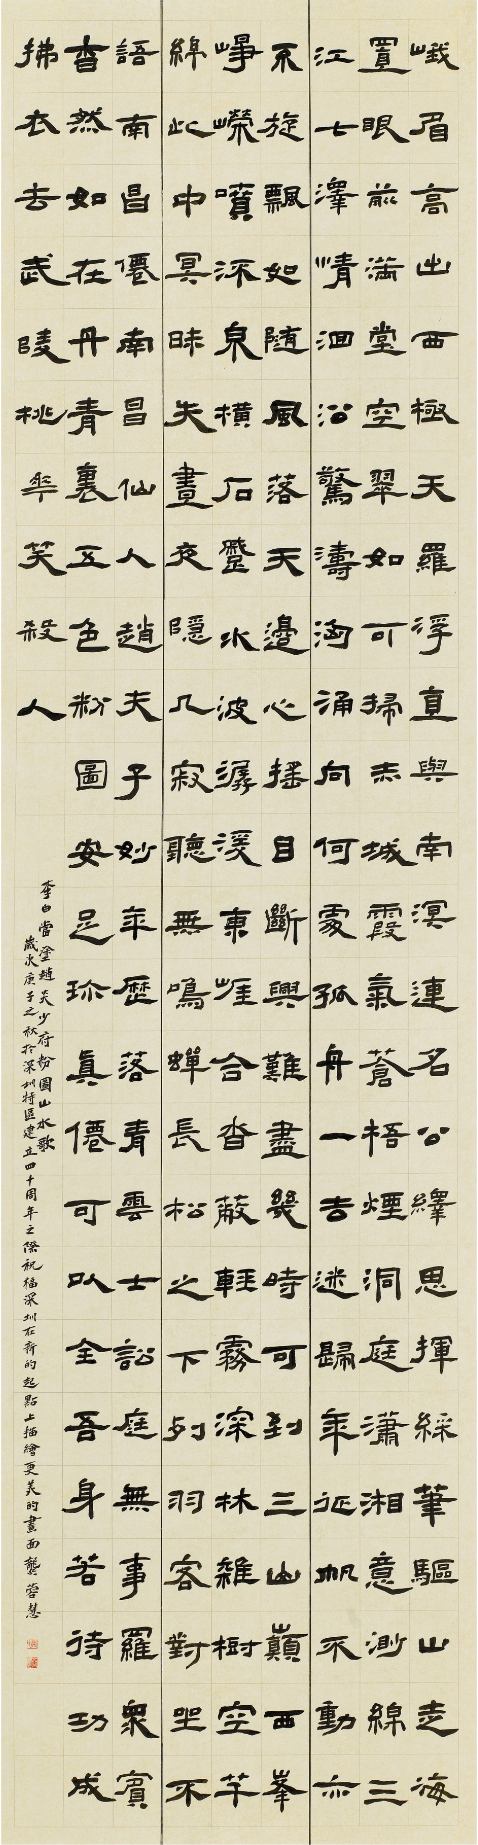 峨眉高出西極天羅浮直與南溟連名公繹思揮綵筆驅山走海
置眼前滿堂空翠如可掃赤城霞氣蒼梧煙洞庭瀟湘意渺綿三
江七澤情洄沿驚濤洶涌向何處孤舟一去迷歸年征帆不動亦
不旋飄如隨風落天邊心搖目斷興難盡幾時可到三山巔西峯
崢嶸噴流泉橫石蹙水波潺湲東崖合沓蔽輕霧深林雜樹空芊
綿此中冥昧失晝夜隱几寂聽無鳴蟬長松之下列羽客對坐不
語南昌僊南昌仙人趙夫子妙年歷落青雲士訟庭無事羅衆賓
杳然如在丹青裏五色粉圖安足珍真僊可以全吾身若待功成
拂衣去武陵桃華笑殺人
李白當塗趙炎少府粉圖山水歌
歲次庚子之秋於深圳特區建立四十周年之際祝福深圳在新的起點上描繪更美的畫面龔蓉慧